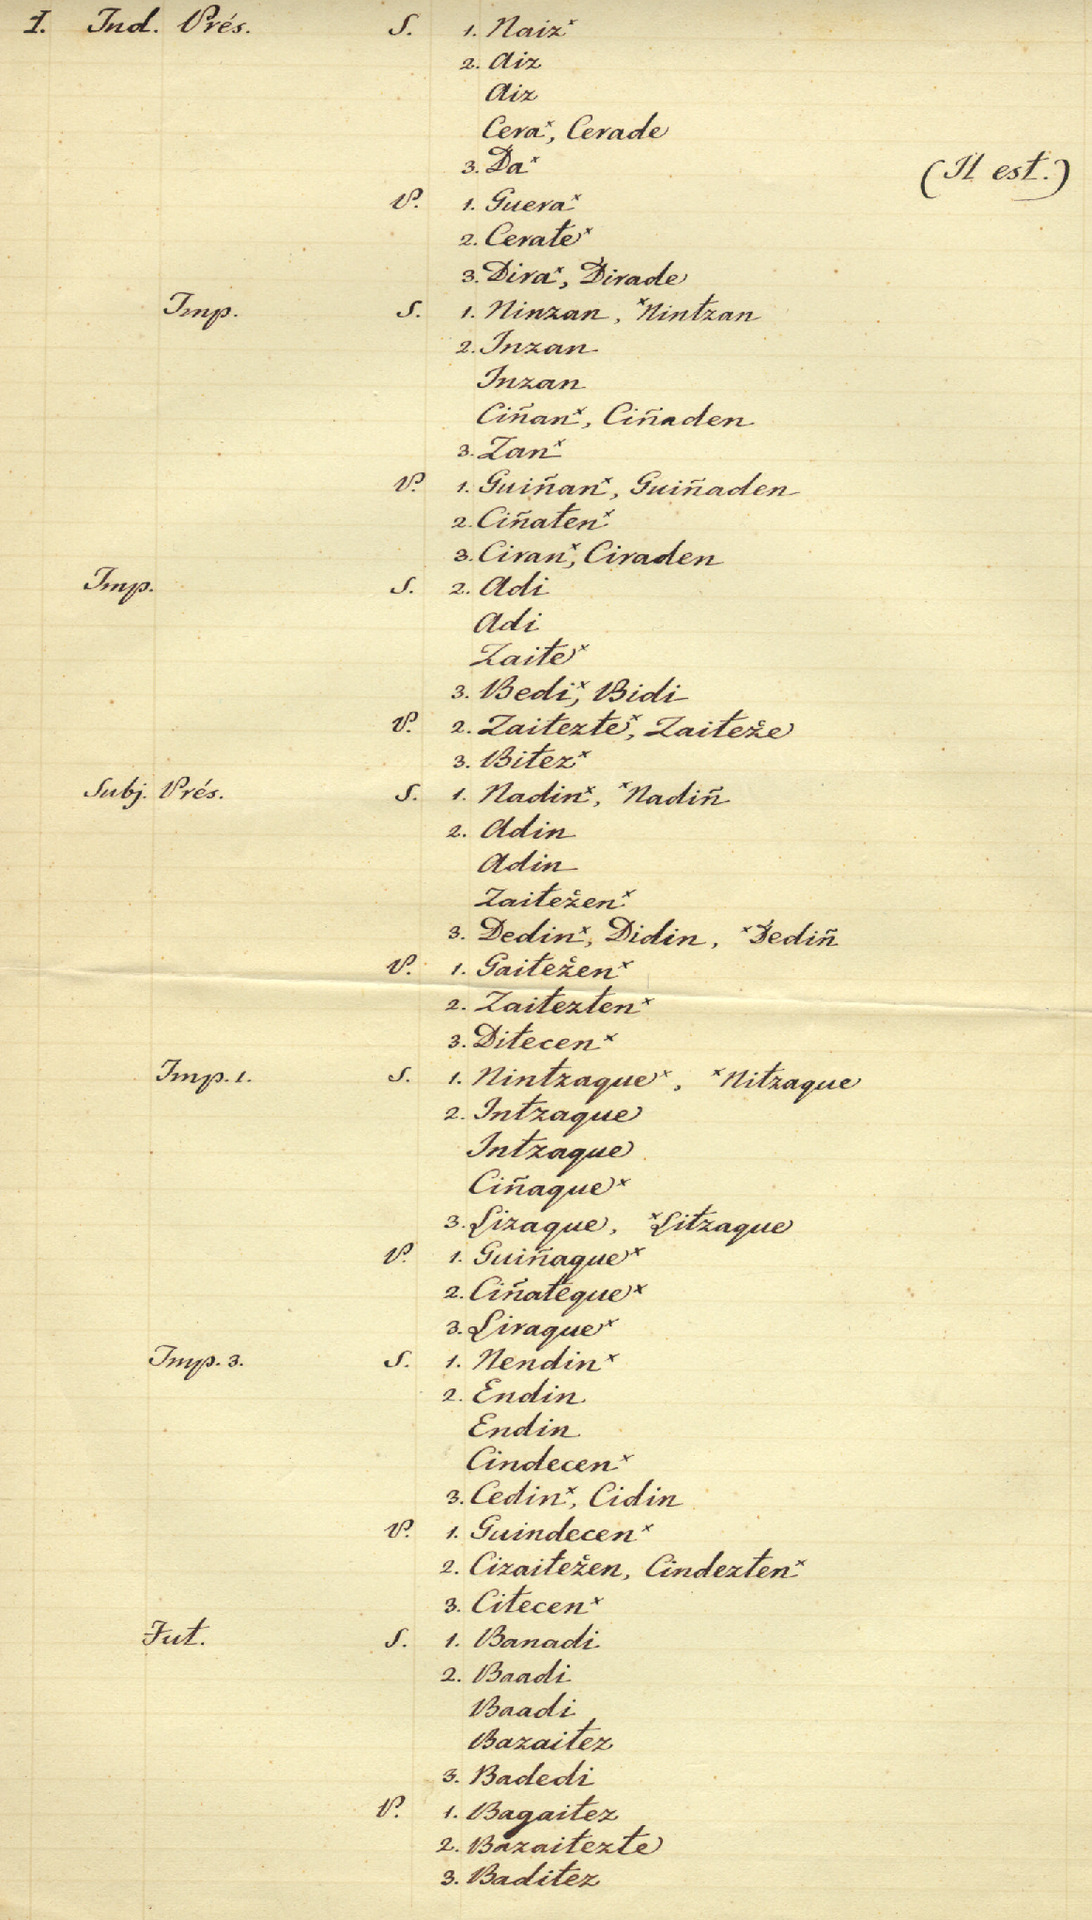 I. Ind. Prés. S. 1. Naiz ˣ
2. Aiz
Aiz
Cera ˣ, Cerade
3. Da ˣ (Il est.)
P. 1. Guera ˣ
2. Cerate ˣ
3. Dira ˣ, Dirade
Imp. S. 1. Ninzan, ˣNintzan
2. Inzan
Inzan
Ciñan ˣ, Ciñaden
3. Zan ˣ
P. 1. Guiñan ˣ, Guiñaden
2. Ciñaten ˣ
3. Ciran ˣ, Ciraden
Imp. S. 2. Adi
Adi
Zaite ˣ
3. Bedi ˣ, Bidi
P. 2. Zaitezte ˣ, Zaiteže
3. Bitez ˣ
Subj. Prés. S. 1. Nadin ˣ, ˣNadiñ
2. Adin
Adin
Zaitežen ˣ
3. Dedin ˣ, Didin, ˣDediñ
P. 1. Gaitežen ˣ
2. Zaitezten ˣ
3. Ditecen ˣ
Imp. 1. S. 1. Nintzaque ˣ, ˣNitzaque
2. Intzaque
Intzaque
Ciñaque ˣ
3. Lizaque, ˣLitzaque
P. 1. Guiñaque ˣ
2. Ciñateque ˣ
3. Liraque ˣ
Imp. 3. S. 1. Nendin ˣ
2. Endin
Endin
Cindecen ˣ
3. Cedin ˣ, Cidin
P. 1. Guindecen ˣ
2. Cizaitežen, Cindezten ˣ
3. Citecen ˣ
Fut. S. 1. Banadi
2. Baadi
Baadi
Bazaitez
3. Badedi
P. 1. Bagaitez
2. Bazaitezte
3. Baditez